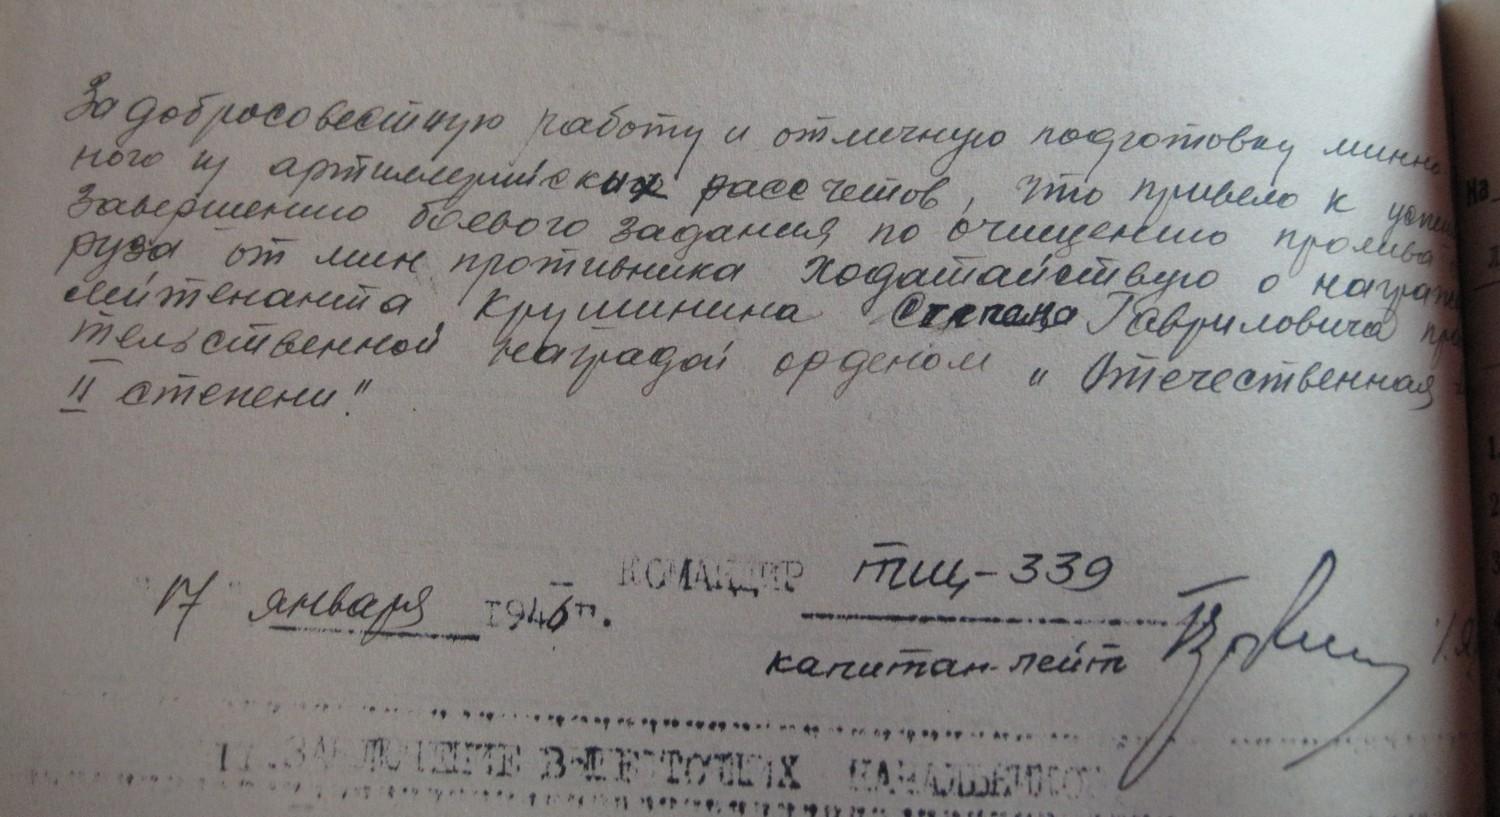 За добросовестную работу и отличную подготовку минно
ного и артиллерийских рассчетов, что привело к
завершению боевого задания по очищению пролива
руза от мин противника ходатайствую о
лейтенанта Крушинина Степана Гавриловича
тельственной наградой орденом „Отечественная
II степени."
"17" января 1946 г. КОМАНДИР тщ-339
капитан-лейт
IV. ЗАКЛЮЧЕНИЕ ВЫШЕСТОЯЩИХ НАЧАЛЬНИКОВ
На
1.
2
3